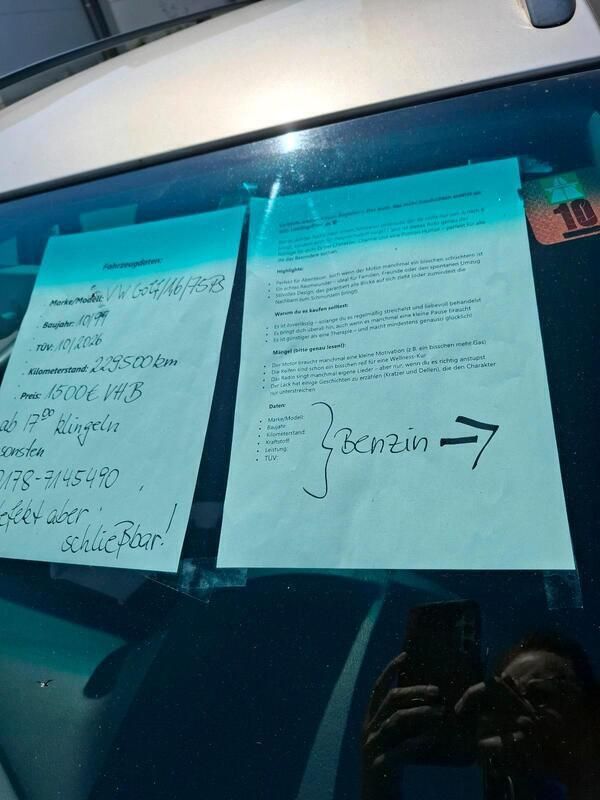 Fahrzeugdaten:
• Marke/Modell: VW Golf/1.6/75PS
• Baujahr: 10/99
• TÜV: 10/2026
• Kilometerstand: 229500 km
• Preis: 1500€ VHB
ab 17⁰⁰ klingeln
sonsten
0178-7145490
efekt aber
schließbar!
die das Besondere suchen.
Highlights:
• Perfekt für Abenteuer, auch wenn der Motor manchmal ein bisschen schüchtern ist
• Ein echtes Raumwunder – ideal für Familien, Freunde oder den spontanen Umzug
• Stilvolles Design, das garantiert alle Blicke auf sich zieht (oder zumindest die
Nachbarn zum Schmunzeln bringt)
Warum du es kaufen solltest:
• Es ist zuverlässig – solange du es regelmäßig streichelst und liebevoll behandelst
• Es bringt dich überall hin, auch wenn es manchmal eine kleine Pause braucht
• Es ist günstiger als eine Therapie – und macht mindestens genauso glücklich!
Mängel (bitte genau lesen!):
• Der Motor braucht manchmal eine kleine Motivation (z. B. ein bisschen mehr Gas)
• Die Reifen sind schon ein bisschen reif für eine Wellness-Kur
• Das Radio singt manchmal eigene Lieder – aber nur, wenn du es richtig anstupst
• Der Lack hat einige Geschichten zu erzählen (Kratzer und Dellen), die den Charakter
nur unterstreichen
Daten:
• Marke/Modell:
• Baujahr:
• Kilometerstand:
• Kraftstoff:
• Leistung:
• TÜV:
Benzin →
10